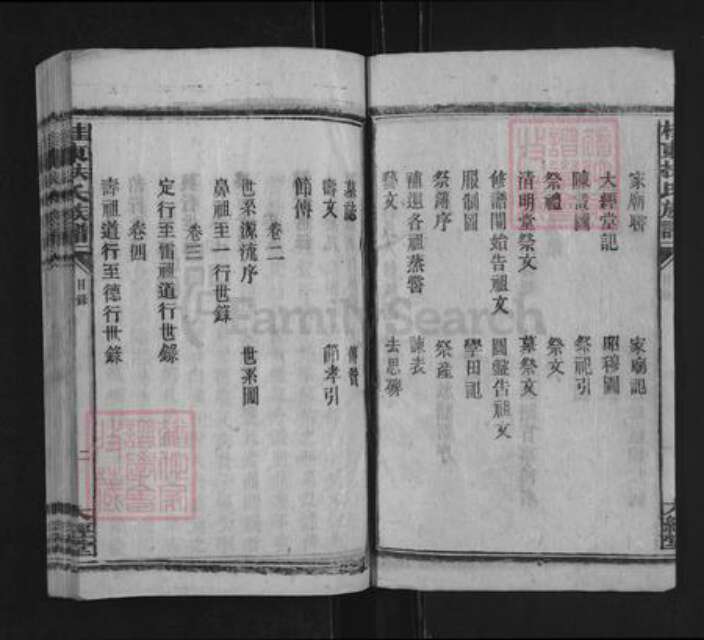 家廟記
大經堂記
昭穆圖
陳設圖
祭祀引
祭禮
祭文
清明堂祭文
墓祭文
修譜開始告祖文
圓譜告祖文
服制圖
學田記
祭簿序
祭產
補還各祖蒸嘗
諫表
藝文
去思碑
墓誌
傳贊
壽文
節孝引
節傳
卷二
世系源流序
世系圖
鼻祖至一行世錄
卷三
定行至雷祖道行世錄
卷四
壽祖道行至德行世錄
桂東扶氏族譜
目錄
二
大經堂
FamilySearch